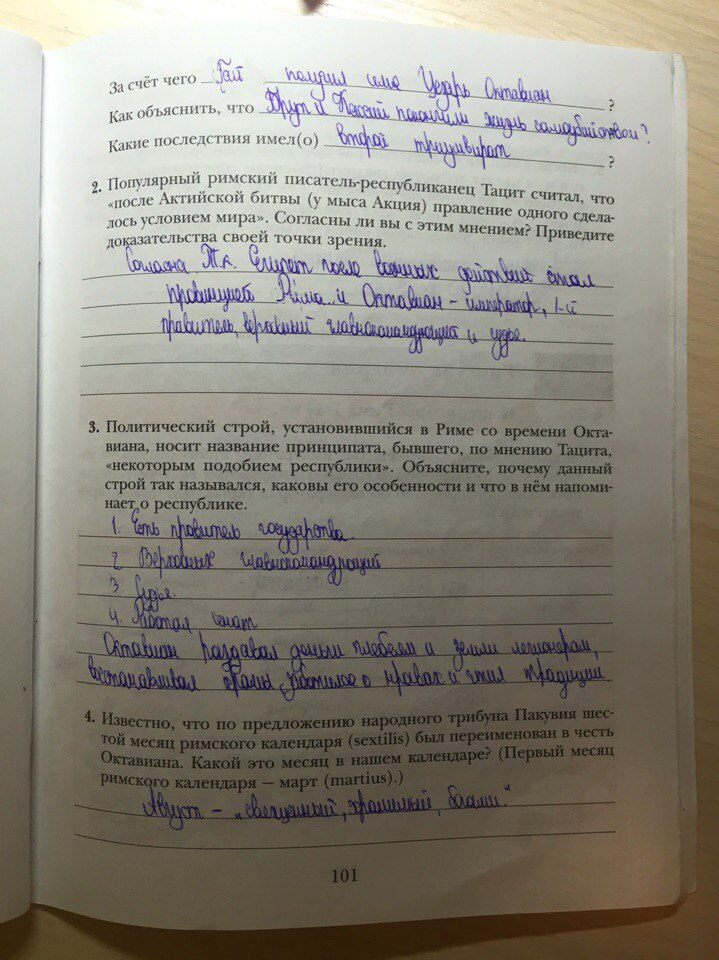 За счёт чего Гай получил имя Цезарь Октавиан ?
Как объяснить, что Брут и Кассий покончили жизнь самоубийством?
Какие последствия имел(о) второй триумвират ?
2. Популярный римский писатель-республиканец Тацит считал, что
«после Актийской битвы (у мыса Акция) правление одного сдела-
лось условием мира». Согласны ли вы с этим мнением? Приведите
доказательства своей точки зрения.
Согласна т.к. Египет после военных действий стал
провинцией Рима и Октавиан - император, 1-й
правитель, верховный главнокомандующий и судье.
3. Политический строй, установившийся в Риме со времени Окта-
виана, носит название принципата, бывшего, по мнению Тацита,
«некоторым подобием республики». Объясните, почему данный
строй так назывался, каковы его особенности и что в нём напоми-
нает о республике.
1. Есть правитель государства.
2 Верховных главнокомандующий
3 Судья.
4. Работал сенат
Октавиан раздавал деньги плебеям и земли легионерам,
восстанавливал храмы, заботился о нравах и чтил традиции.
4. Известно, что по предложению народного трибуна Пакувия шес-
той месяц римского календаря (sextilis) был переименован в честь
Октавиана. Какой это месяц в нашем календаре? (Первый месяц
римского календаря — март (martius).)
Август - „священный, хранимый,
101